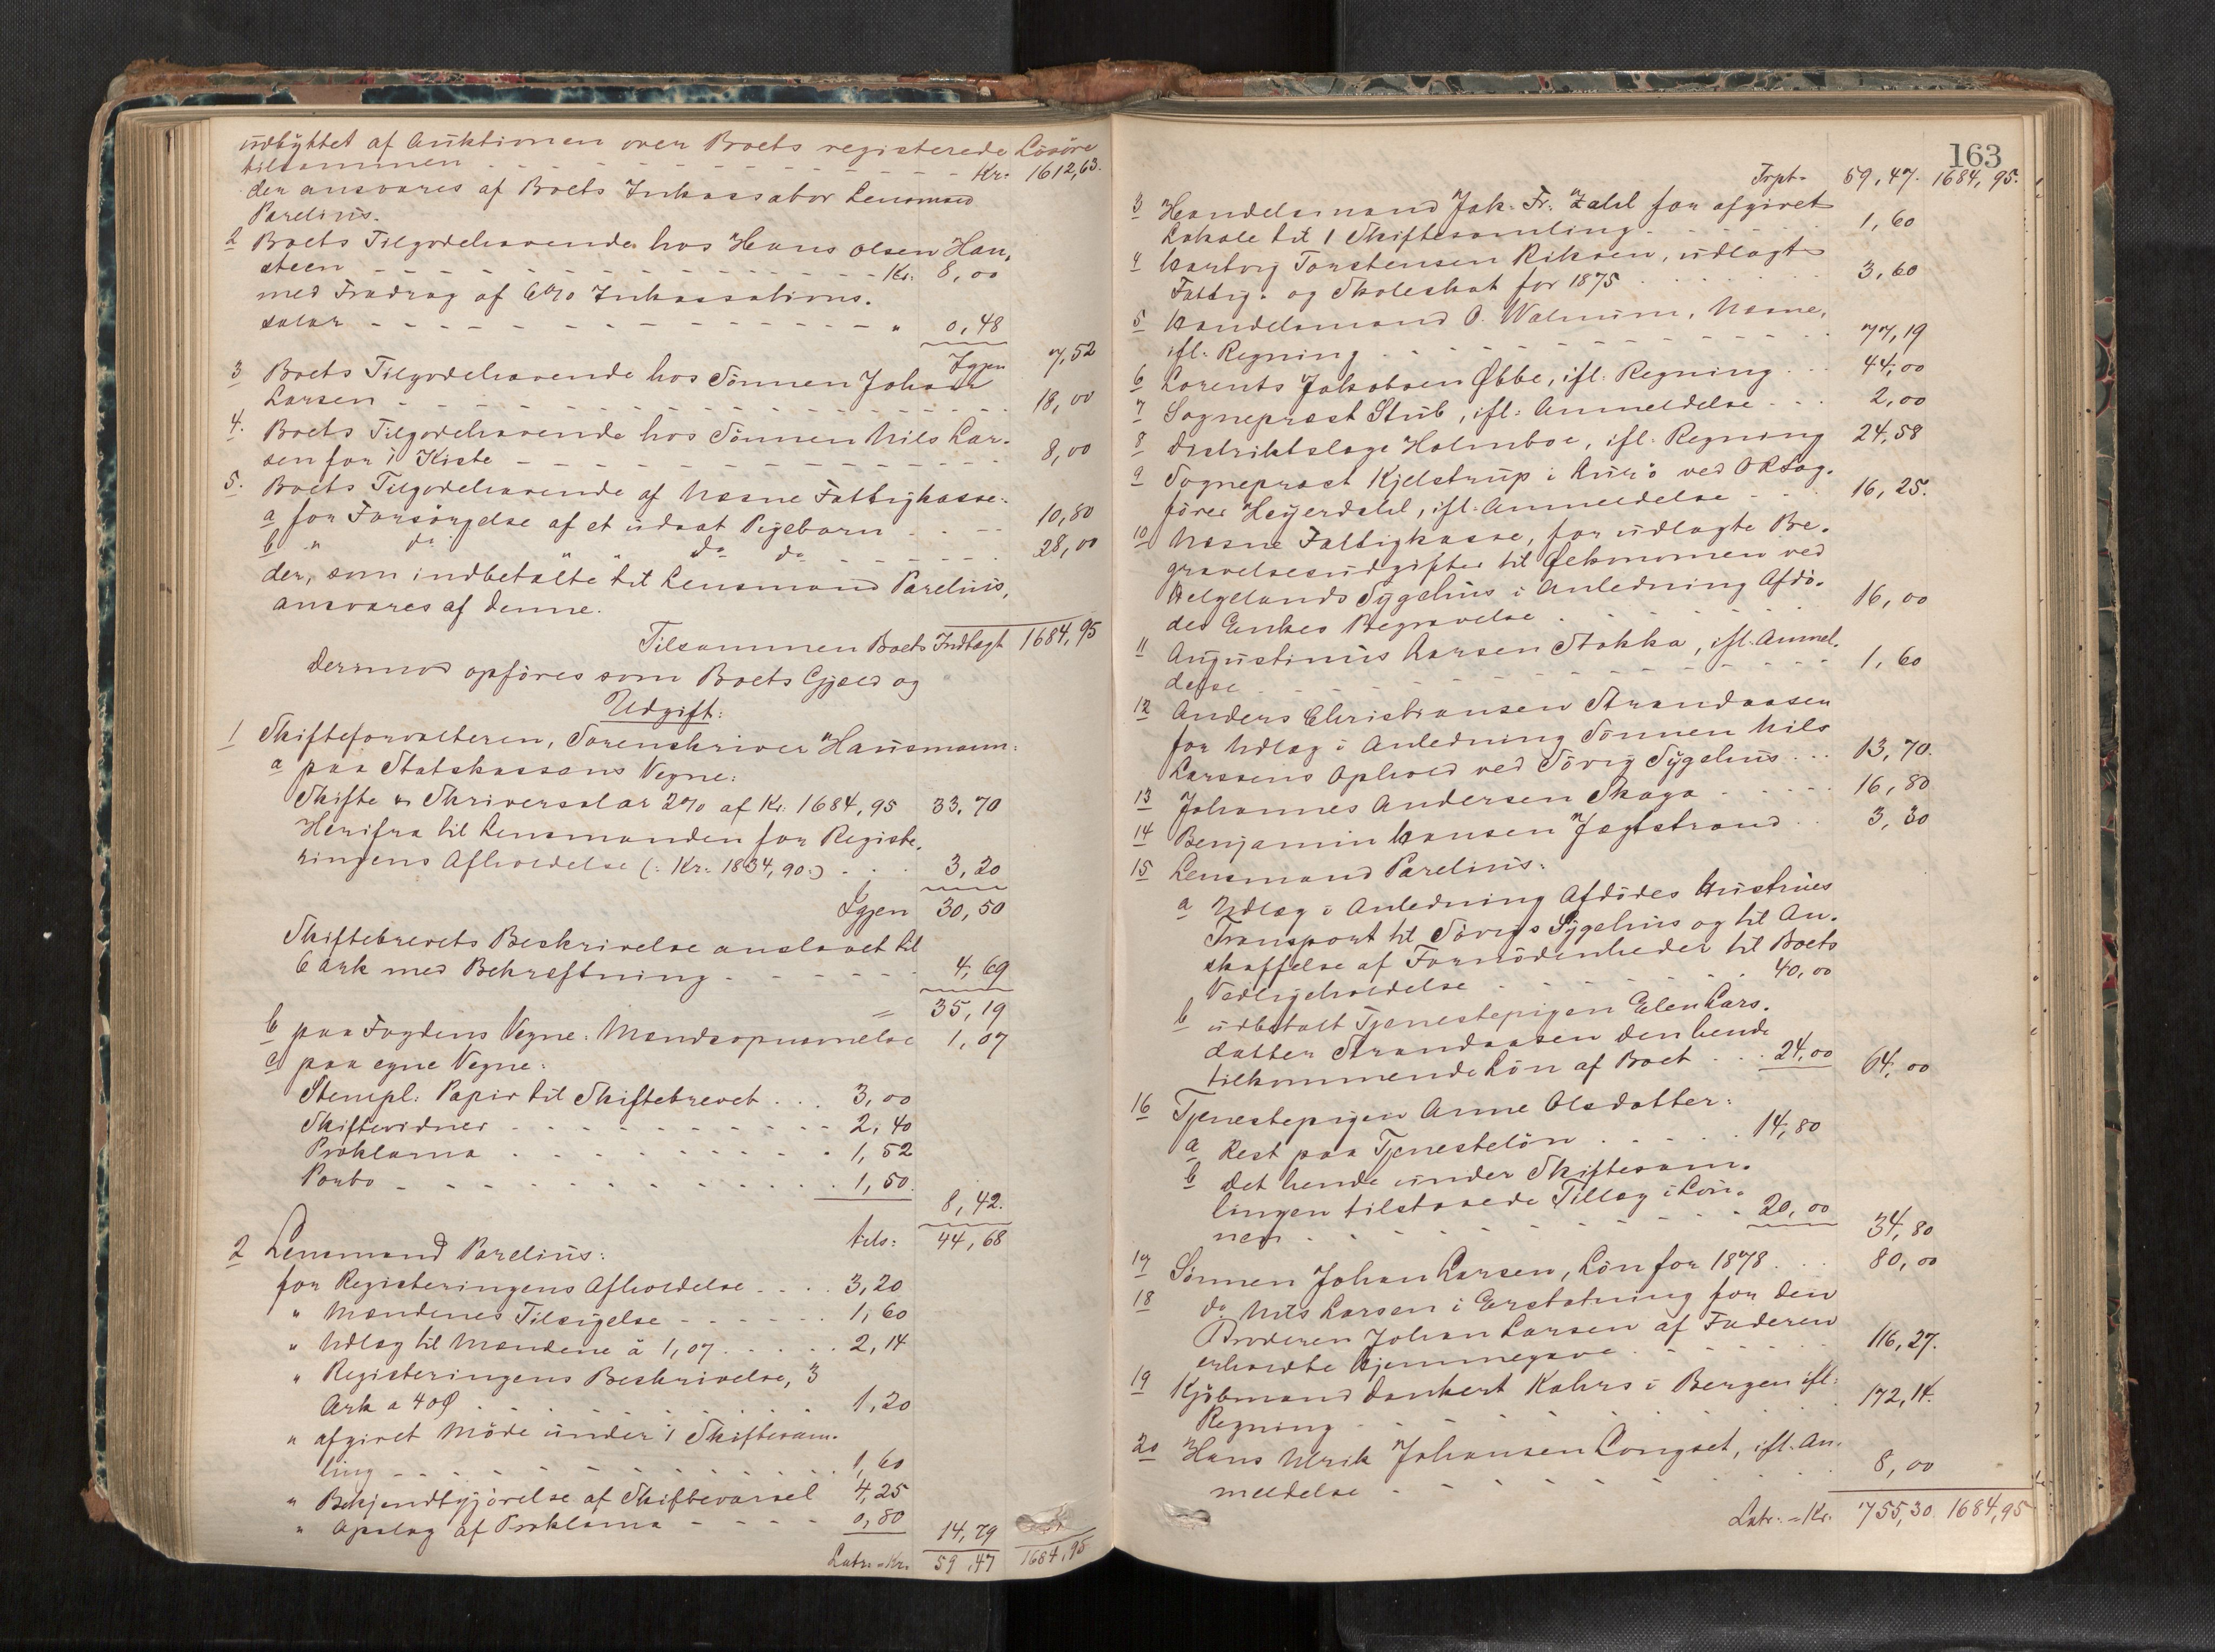 udbyttet af Auktionen over Boets registerede Løsøre
tilsammen - - - - - - - - Kr. 1612,63.
der ansvares af Boets Inkassator Lensmand
Parelius.
2 Boets Tilgodehavende hos Hans Olsen Han-
steen - - - - - - - - Kr. 8,00
med Fradrag af 6% Inkassations-
salær - - - - - - - - " 0,48
Igjen 7,52
3 Boets Tilgodehavende hos Sønnen Johan
Larsen - - - - - - - - 18,00
4. Boets Tilgodehavende hos Sønnen Nils Lar-
sen for 1 Kiste - - - - - - - - 8,00
5. Boets Tilgodehavende af Næsne Fattigkasse:
a for Forsørgelse af et udsat Pigebarn - - - 10,80
b " do " " do do - - - - 28,00
der, som indbetalte til Lensmand Parelius,
ansvares af denne.
Tilsammen Boets Indtægt 1684,95
Derimod opføres som Boets Gjæld og
Udgift:
1 Skifteforvalteren, Sorenskriver Hausmann:
a paa Statskassens Vegne:
Skifte & Skriversalær 2% af Kr. 1684,95 33,70
Herifra til Lensmanden for Registe-
ringens Afholdelse (: Kr. 1834,90:) . . . 3,20
Igjen 30,50
Skiftebrevets Beskrivelse anslaaet til
6 Ark med Bekræftning - - - - - - 4,69
= 35,19
b paa Fogdens Vegne: Mændsopnævnelse 1,07
c paa egne Vegne:
Stempl. Papir til Skiftebrevet . . . 3,00
Skiftevidner - - - - - - - - 2,40
Proklama . . . . . . . . 1,52
Porto - - - - - - - - 1,50.
8,42.
tils: 44,68
2 Lensmand Parelius:
for Registeringens Afholdelse . . . . 3,20
" Mændenes Tilsigelse - - - - - - 1,60
" Udlæg til Mændene à 1,07 . . . . . 2,14
" Registeringens Beskrivelse, 3
Ark a 40 Ø . . . . . . . . 1,20
" afgivet Møde under 1 Skiftesam-
ling - - - - - - - - 1,60
" Bekjendtgjørelse af Skiftevarsel 4,25
" Opslag af Proklama - - - - 0,80
14,79
Latr. = Kr. 59,47 1684,95
163
Trpt. 59,47. 1684,95.
3 Handelsmand Jak. Fr. Zahl for afgivet
Lokale til 1 Skiftesamling . . . . . . 1,60
4 Hartvig Torstensen Riksen, udlagt
Fattig- og Skoleskat for 1875 . . . . . . 3,60
5 Handelsmand O. Walnum, Næsne,
ifl. Regning - - - - - - - - 77,19
6 Lorents Jakobsen Øbbe, ifl. Regning . . . 44,00
7 Sogneprest Stub, ifl. Anmeldelse . . . 2,00
8 Distriktslæge Holmboe, ifl. Regning 24,58
9 Sogneprest Kjelstrup i Aurø ved ORSag-
fører Heyerdahl, ifl. Anmeldelse - - - 16,25.
10 Næsne Fattigkasse, for udlagte Be-
gravelsesudgifter til Økonomen ved
Helgelands Sygehus i Anledning Afdø-
des Enkes Begravelse . . . . . . . 16,00
11 Augustinus Larsen Stokka, ifl. Anmel-
delse - - - - - - - - 1,60
12 Anders Christiansen Strandaasen
for Udlæg i Anledning Sønnen Nils
Larsens Ophold ved Søvig Sygehus . . . 13,70.
13 Johannes Andersen Skaga . . . . . 16,80
14 Benjamin Hansen Jægtstrand . . 3,30
15 Lensmand Parelius:
a Udlæg i Anledning Afdødes Hustrues
Transport til Søvigs Sygehus og til An-
skaffelse af Fornødenheder til Boets
Vedligeholdelse . . . . . . . 40,00
b udbetalt Tjenestepigen Elen Lars-
datter Strandaasen den hende
tilkommende Løn af Boet . . . 24,00 64,00
16 Tjenestepigen Anne Olsdatter:
a Rest paa Tjenesteløn . . . . . 14,80
b det hende under Skiftesam-
lingen tilstaaede Tillæg i Løn-
nen . . . . . . . . 20,00 34,80
17 Sønnen Johan Larsen, Løn for 1878 . . . 80,00
18 do Nils Larsen i Erstatning for den
Broderen Johan Larsen af Faderen
erholdte Hjemmegave . . . . . . . 116,27.
19 Kjøbmand Dankert Kahrs i Bergen ifl.
Regning - - - - - - - - 172,14.
20 Hans Ulrik Johansen Longset, ifl. An-
meldelse - - - - - - - - 8,00
Latr. = Kr. 755,30 1684,95